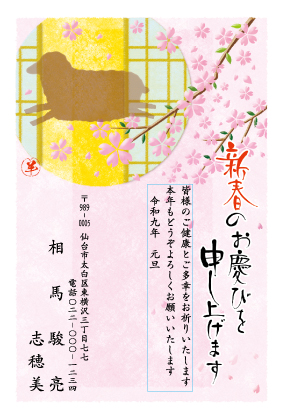 新春のお慶びを
申し上げます
皆様のご健康とご多幸をお祈りいたします
本年もどうぞよろしくお願いいたします
令和九年 元旦
羊
〒989-0005
仙台市太白区東横沢三丁目七七
電話〇二二-〇〇〇-一二三四
相馬駿亮
志穂美